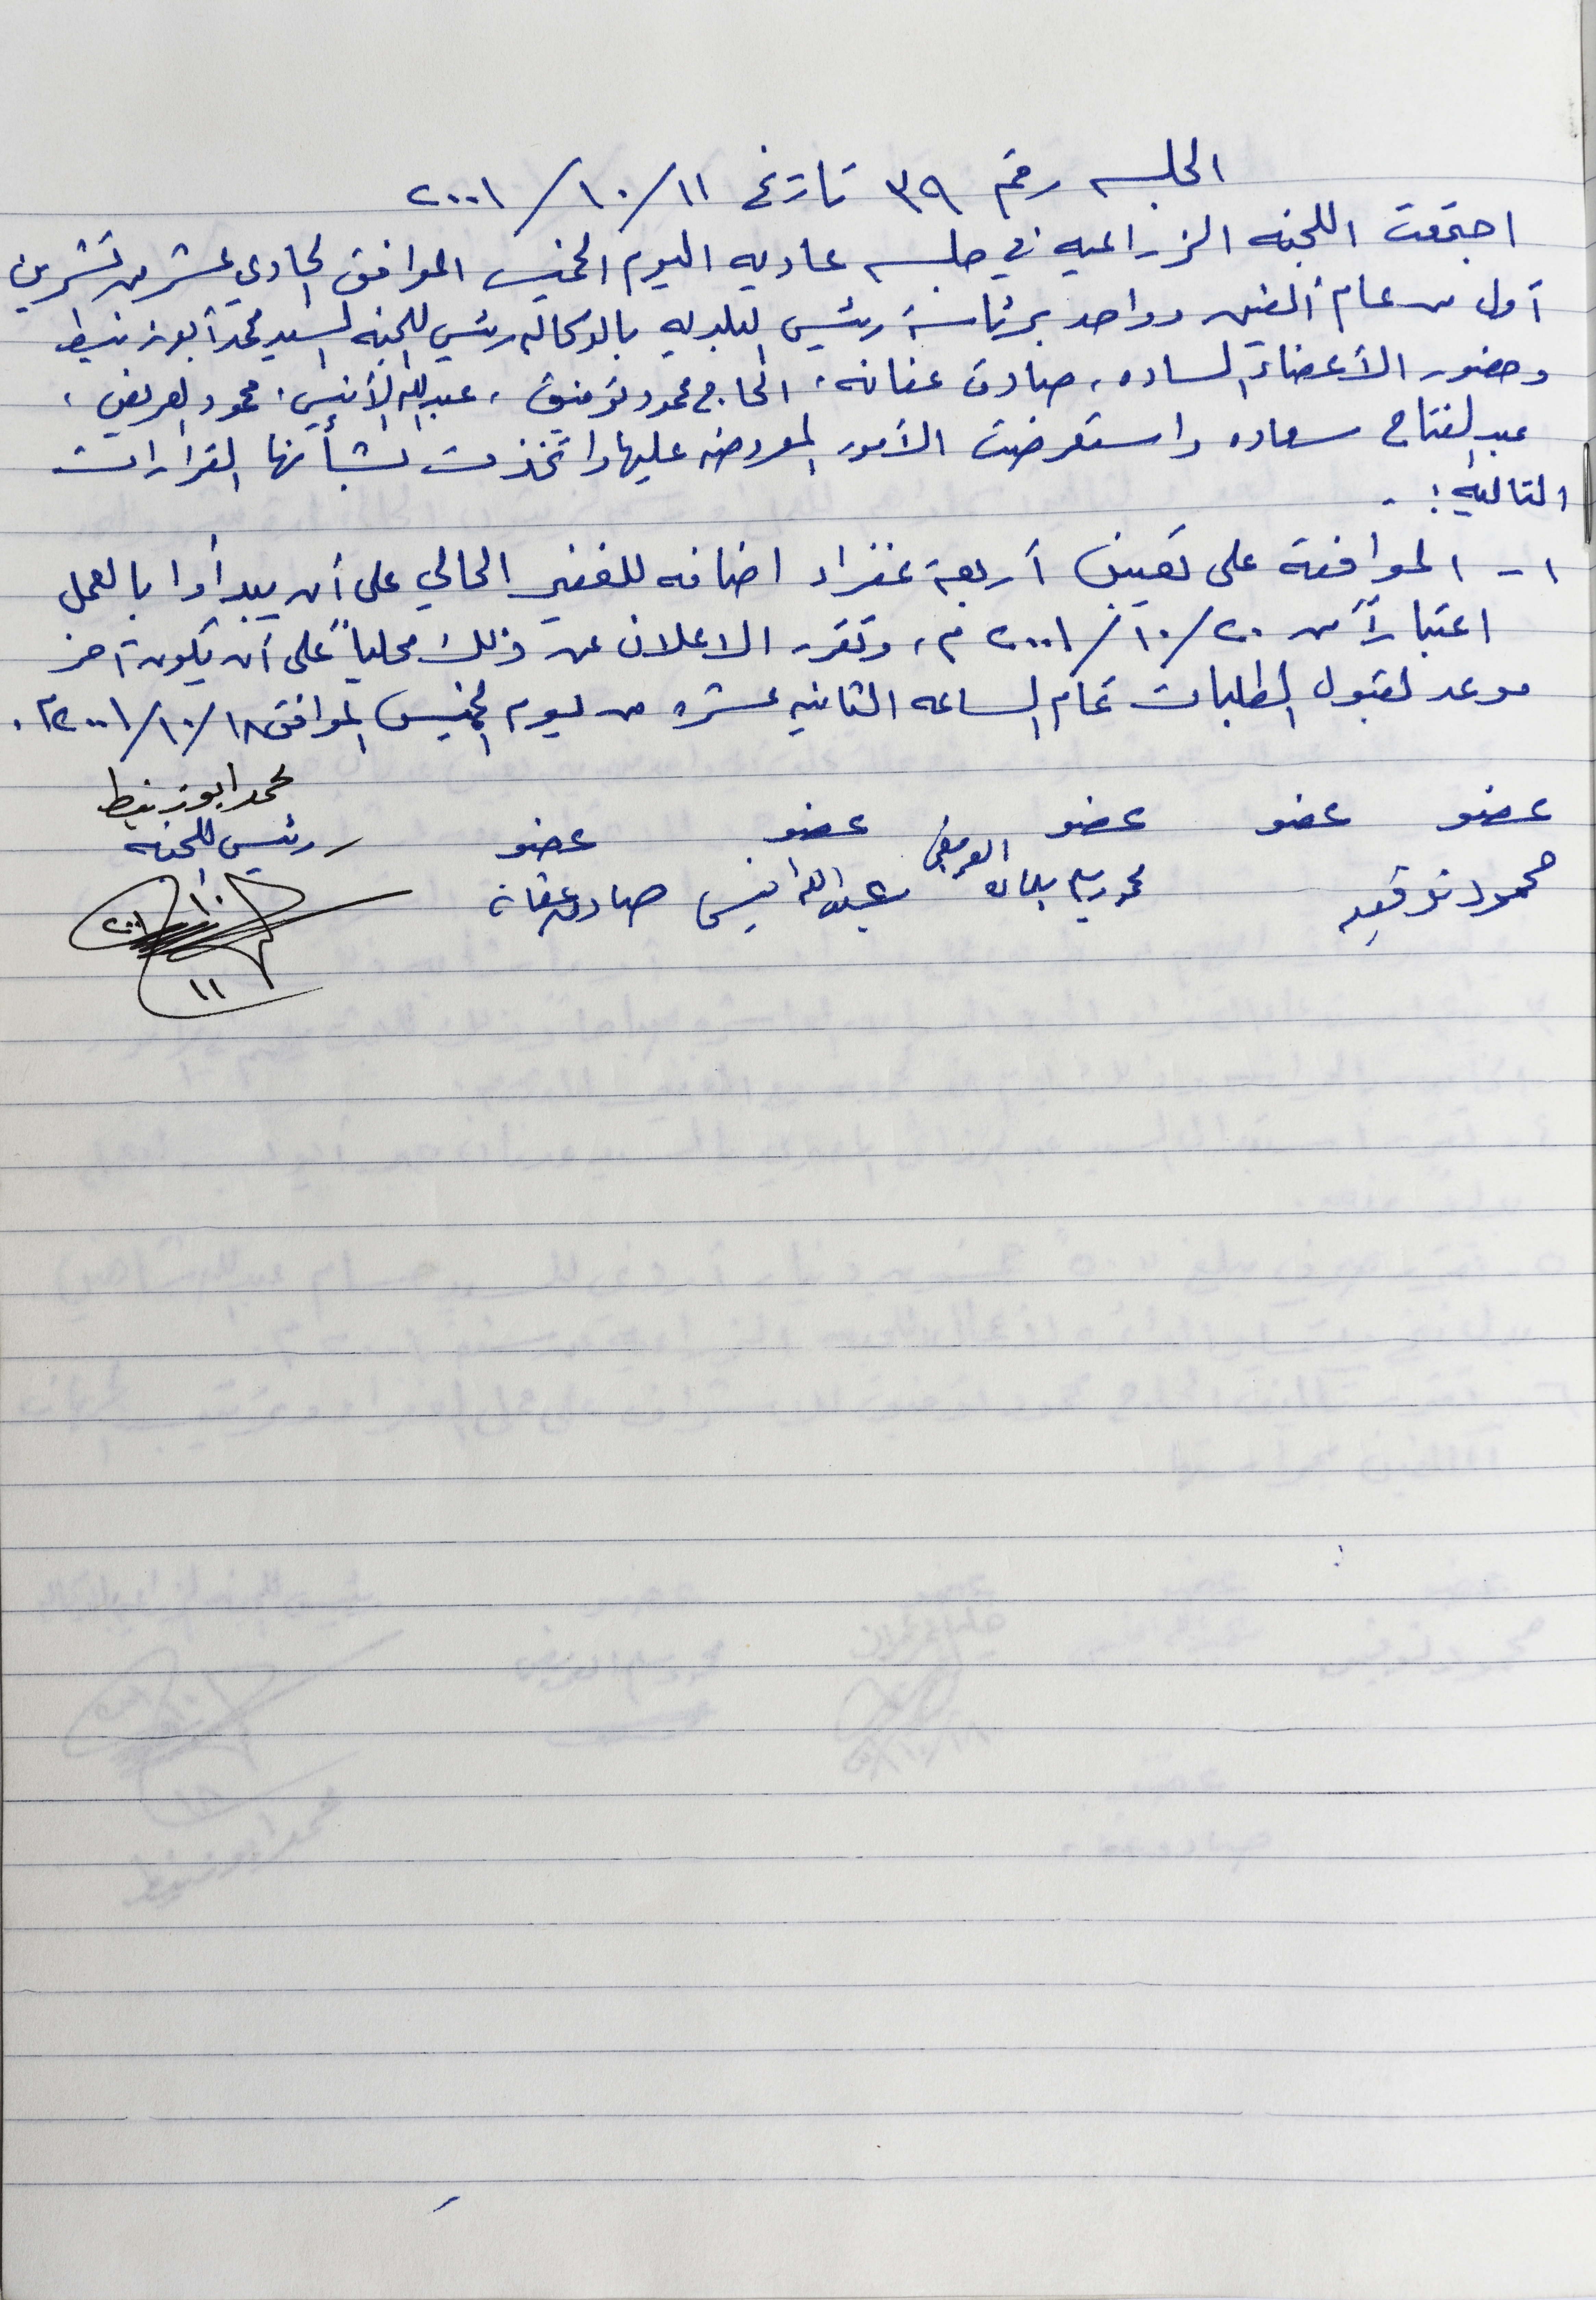 الجلسه رقم ٣٩ تاريخ ١١/١٠/٢٠٠١
اجتمعت اللجنه الزراعيه في جلسه عاديه اليوم الخميس الموافق الحادي عشر من تشرين
أول من عام ألفين وواحد برئاسة رئيس البلديه بالوكاله رئيس اللجنه السيد محمد أبوزنيط
وحضور الأعضاء الساده، صادق عفانه، الحاج محمود توفيق، عبدالله الأنيس، محمود العريض،
عبدالفتاح سعاده واستعرضت الأمور المعروضه عليها واتخذت بشأنها القرارات
التاليه:-
١- الموافقة على تعيين أربعة غفراء اضافه للغفير الحالي على أن يبدأوا بالعمل
اعتباراً من ٢٠/١٠/٢٠٠١م، وتقرر الاعلان عن ذلك محلياً على أن يكون آخر
موعد لقبول الطلبات تمام الساعه الثانيه عشره من ليوم الخميس الموافق ١٨/١٠/٢٠٠١م.
عضو عضو عضو عضو عضو محمد ابوزنيط
رئيس اللجنه
محمود توفيق عبدالله انيس صادق عفانة
١٠
٢٠٠١
١١